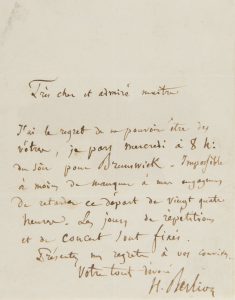 Très cher et admiré maître
J'ai le regret de ne pouvoir être des
vôtres, je pars mercredi à 8 h.
du soir pour Brunswick. Impossible
à moins de manquer à mes engagemens
de retarder ce départ de vingt quatre
heures. Les jours de répétitions
et de concert sont fixés.
Présentez mes regrets à vos convives.
Votre tout dévoué
H. Berlioz